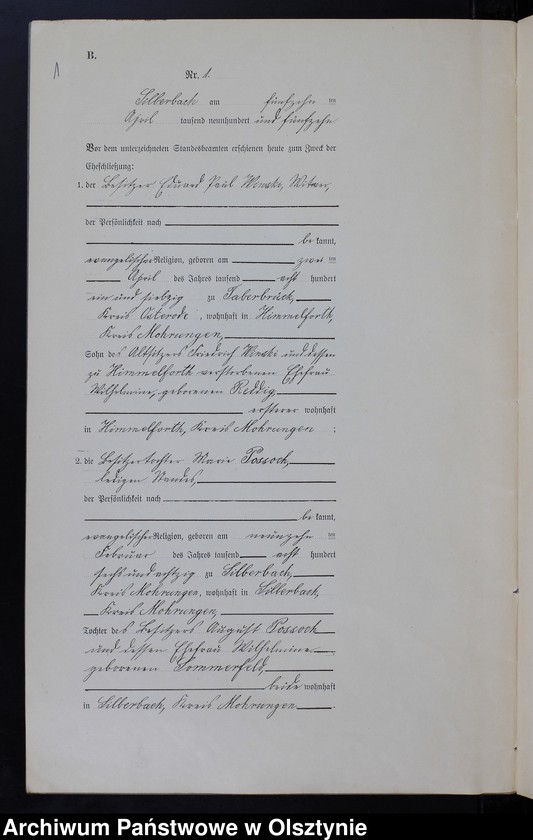 B.
1
Nr. 1.
Silberbach am fünfzehn ten
April tausend neunhundert und fünfzehn
Vor dem unterzeichneten Standesbeamten erschienen heute zum Zweck der
Eheschließung:
1. der Besitzer Eduard Paul Wenski, Witwer,
der Persönlichkeit nach
be kannt,
evangelischer Religion, geboren am zwei ten
April des Jahres tausend acht hundert
ein und siebzig zu Taberbrück,
Kreis Osterode, wohnhaft in Himmelforth,
Kreis Mohrungen,
Sohn des Altsitzers Friedrich Wenski und dessen
zu Himmelforth verstorbenen Ehefrau
Wilhelmine, geborenen Reddig
ersterer wohnhaft
in Himmelforth, Kreis Mohrungen ;
2. die Besitzertochter Marie Possoch,
ledigen Standes,
der Persönlichkeit nach
be kannt,
evangelischer Religion, geboren am neunzehn ten
Februar des Jahres tausend acht hundert
sechs und achtzig zu Silberbach,
Kreis Mohrungen, wohnhaft in Silberbach,
Kreis Mohrungen,
Tochter des Besitzers August Possoch
und dessen Ehefrau Wilhelmine
geborenen Sommerfeld,
beide wohnhaft
in Silberbach, Kreis Mohrungen .
Archiwum Państwowe w Olsztynie